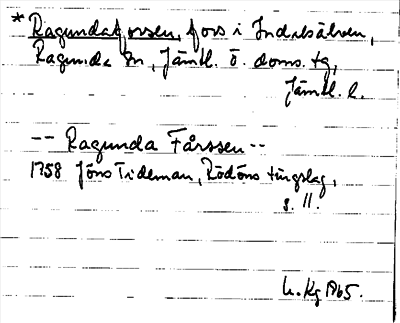 * Ragundaforsen, fors i Indalsälven,
Ragunda sn, Jämtl. ö. doms. tg,
Jämtl. l.
-- Ragunda Fårssen --
1758 Jöns Tideman, Rödöns tingslag,
s. 11.
1965.